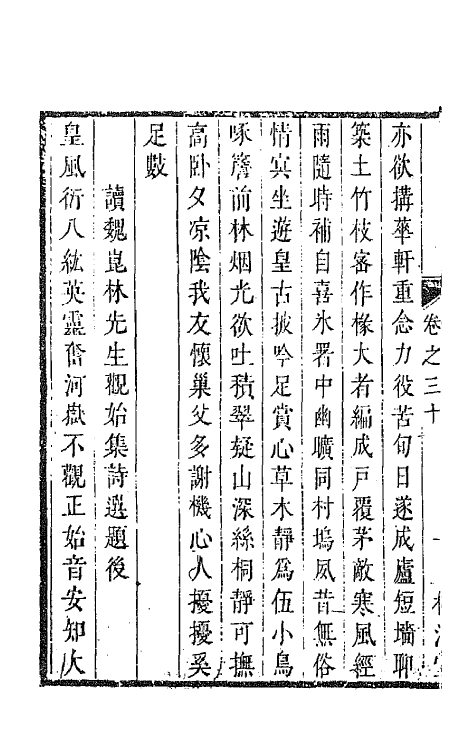 卷之三十
亦欲搆華軒重念力役苦旬日遂成廬短墻聊
築土竹枝密作椽大者編成戸覆茅敵寒風經
雨隨時補自喜氷署中幽曠同村塢夙昔無俗
情寅坐遊皇古披吟足賞心草木靜爲伍小鳥
啄簷前林烟光欲吐積翠疑山深絲桐靜可撫
高卧夕凉陰我友懷巢父多謝機心人擾擾奚
足數
讀魏崑林先生觀始集詩選題後
皇風衍八紘英靈奮河嶽不觀正始音安知大